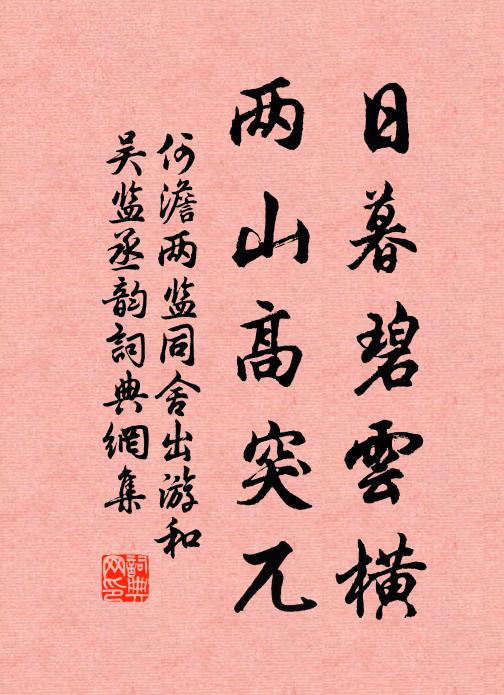 日暮碧雲橫
两山高突兀
何澹两监同舍出游和
吴监丞韵詞典網集
詞典网印